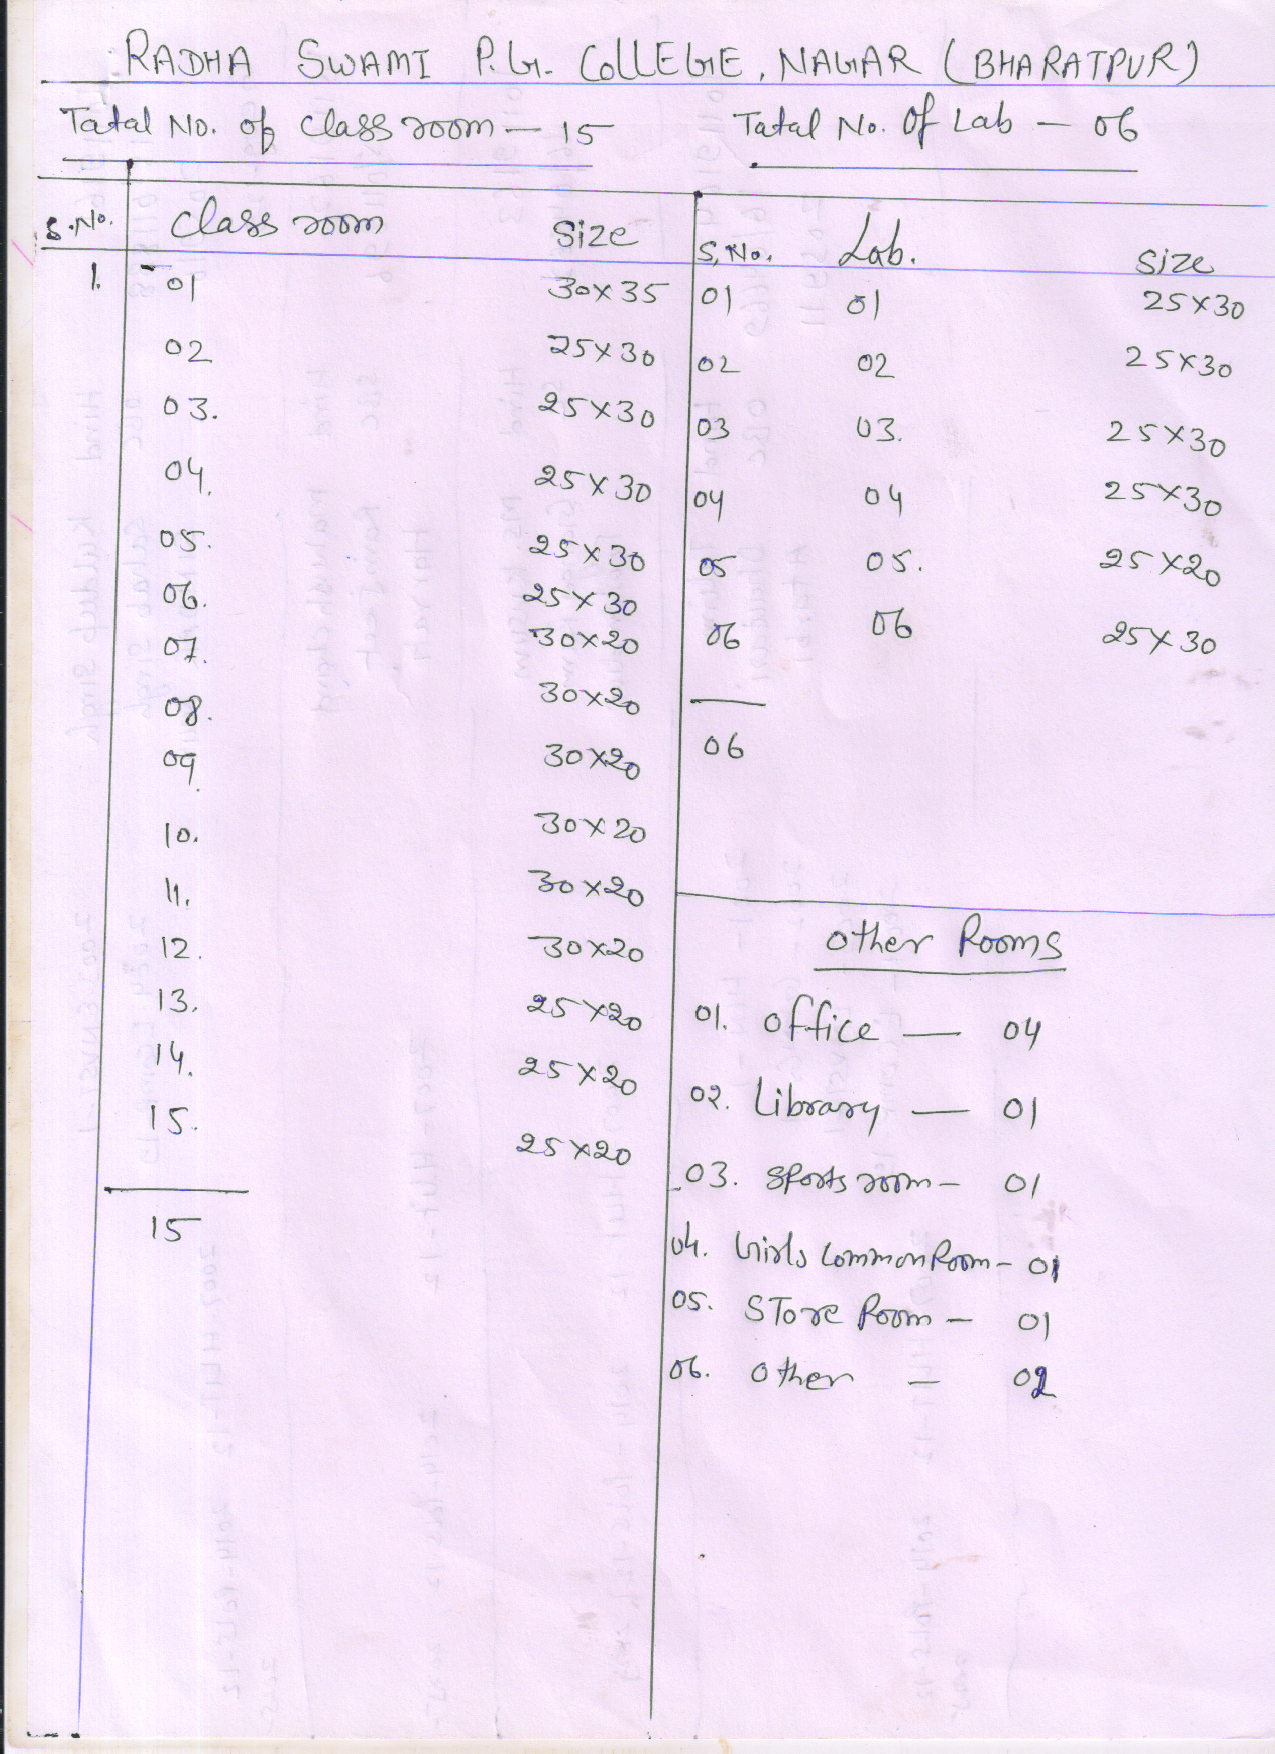 RADHA SWAMI P.G. COllEGE, NAGAR (BHARATPUR)
Tatal No. of class room — 15
Tatal No. Of Lab — 06
S.No. Class room Size
1. 01 30x35
02 25x30
03. 25x30
04. 25x30
05. 25x30
06. 25x30
07. 30x20
08. 30x20
09. 30x20
10. 30x20
11. 30x20
12. 30x20
13. 25x20
14. 25x20
15. 25x20
15
S.No. Lab. Size
01 01 25x30
02 02 25x30
03 03. 25x30
04 04 25x30
05 05. 25x20
06 06 25x30
06
Other Rooms
01. Office — 04
02. Library — 01
03. Sports room — 01
04. Girls Common Room — 01
05. STore Room — 01
06. Other — 02